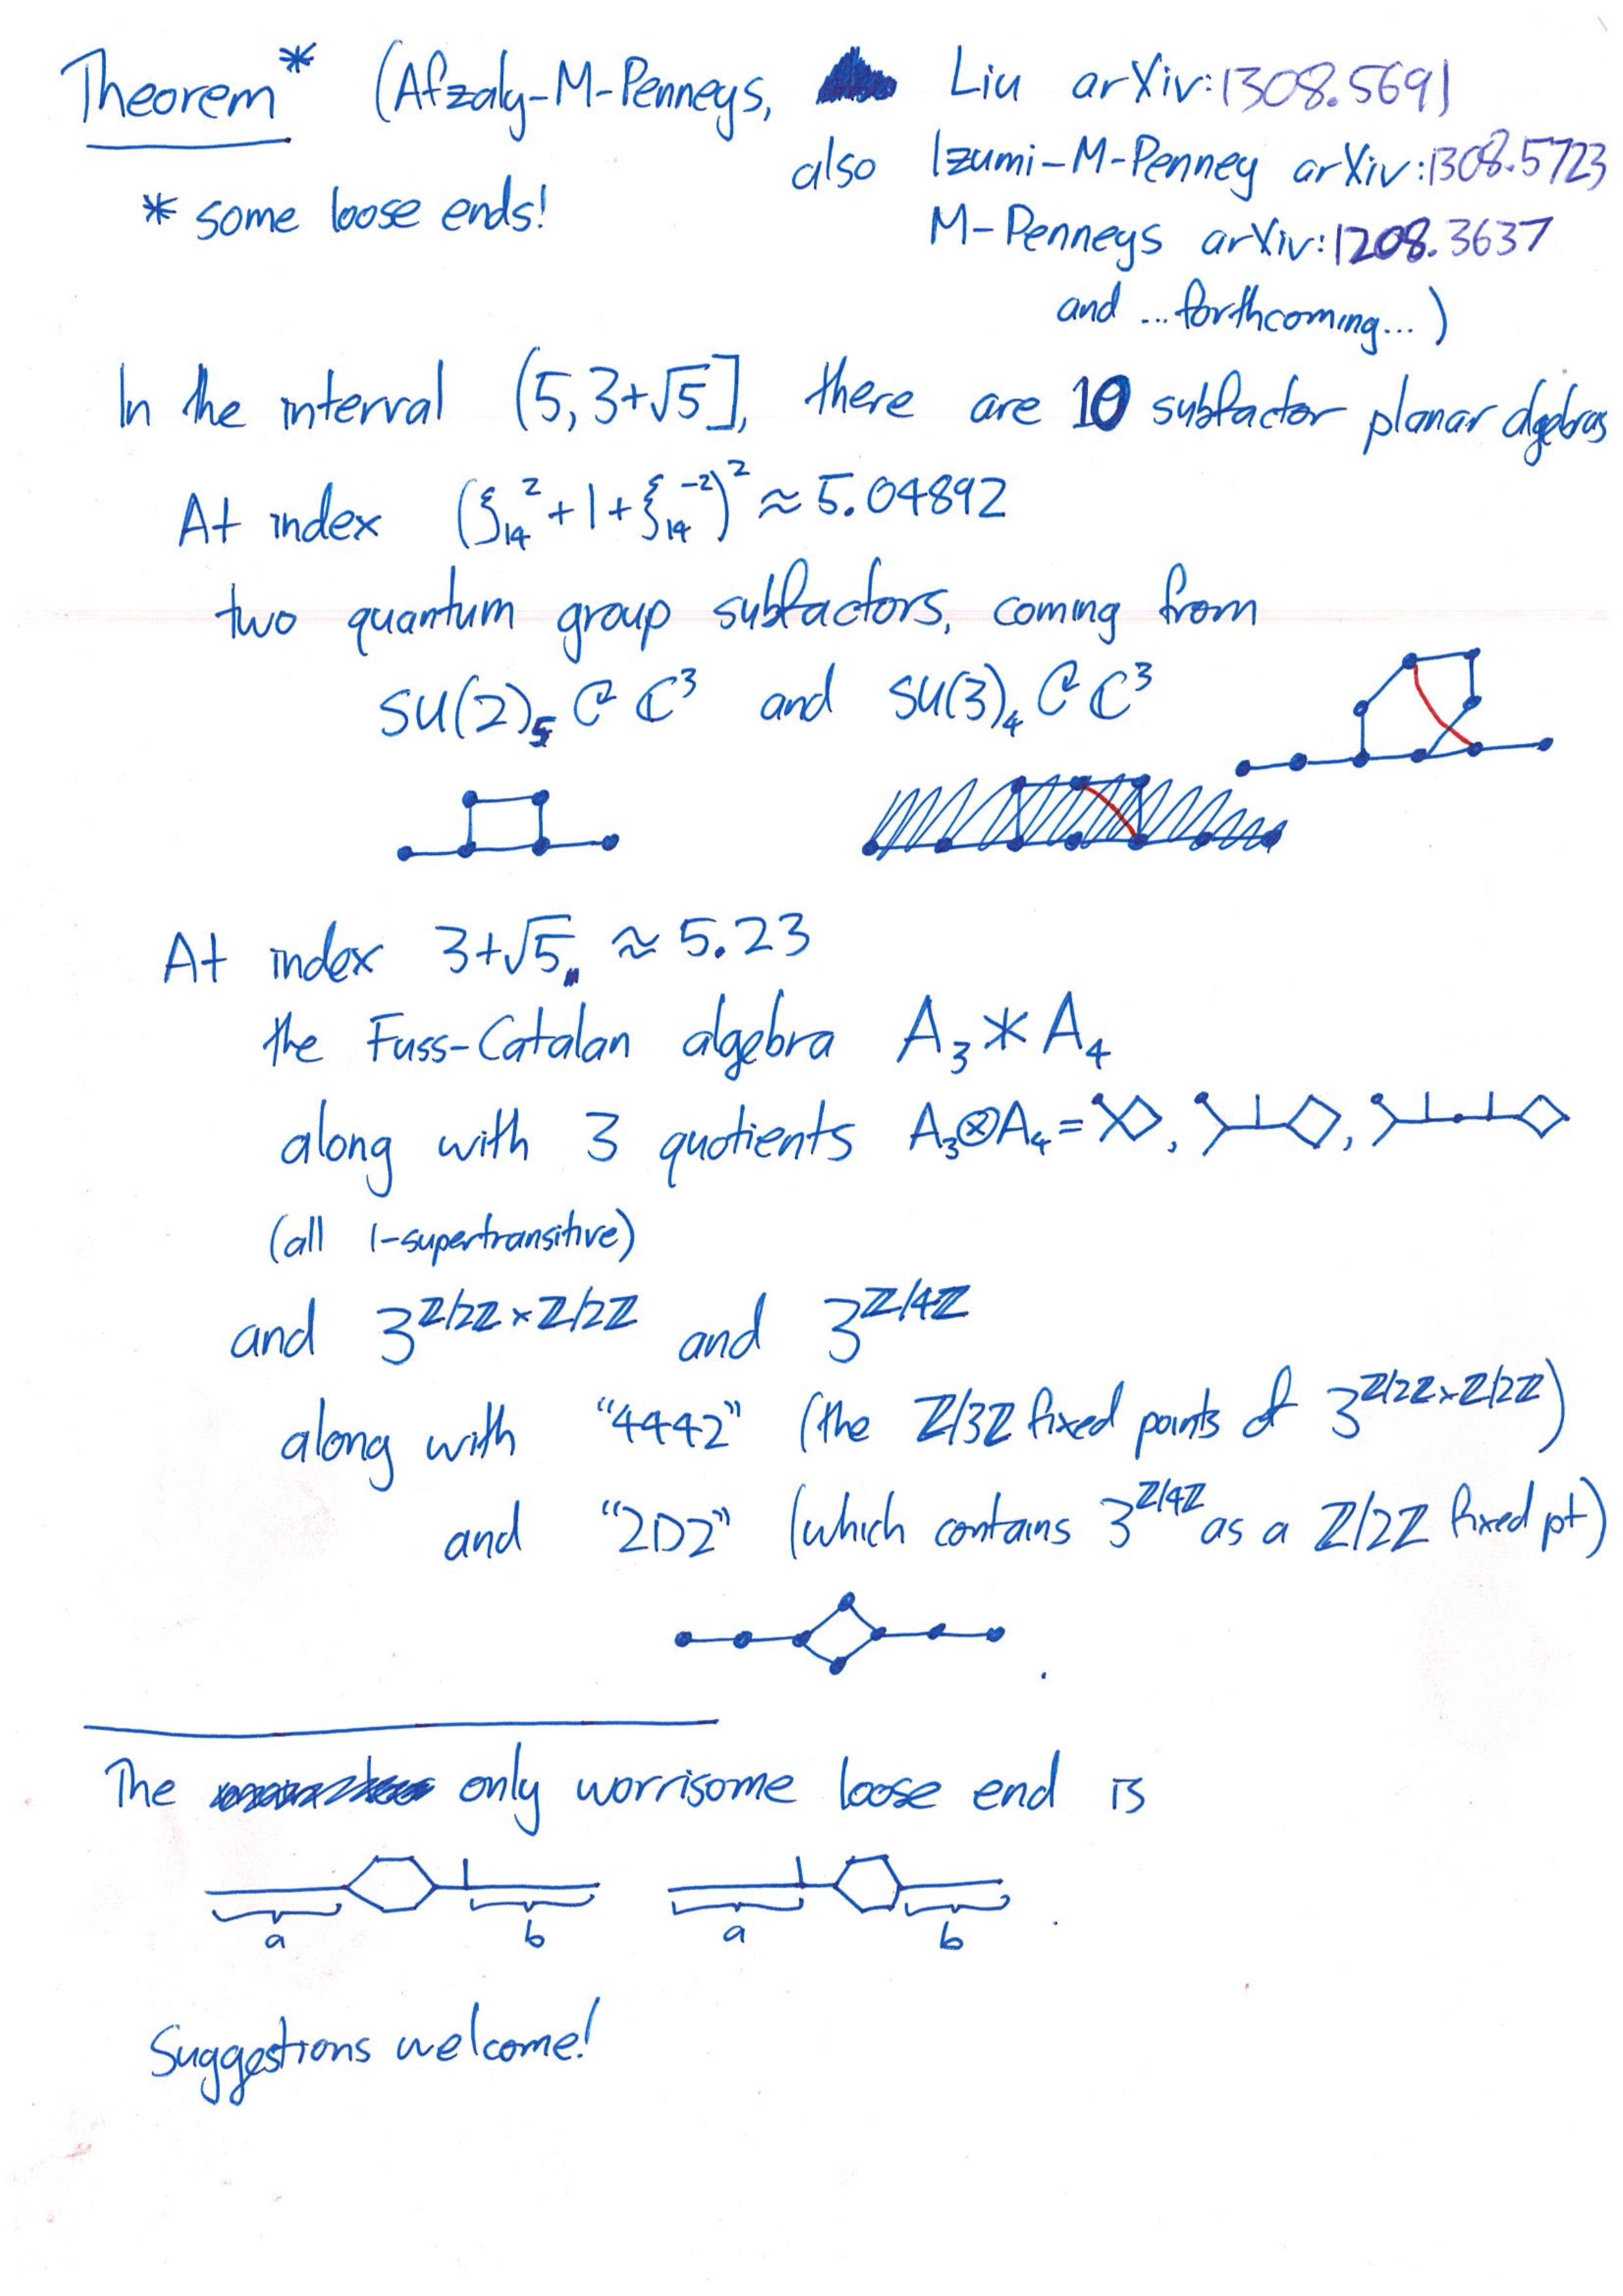 Theorem* (Afzaly-M-Penneys, Liu arXiv:1308.5691
* some loose ends! also Izumi-M-Penney arXiv:1308.5723
M-Penneys arXiv:1208.3637
and ...forthcoming...)
In the interval (5, 3+√5], there are 10 subfactor planar algebras
At index (ξ₁₄² + 1 + ξ₁₄⁻²)² ≈ 5.04892
two quantum group subfactors, coming from
SU(2)₅ C ℂ³ and SU(3)₄ C ℂ³
At index 3+√5, ≈ 5.23
the Fuss-Catalan algebra A₃ * A₄
along with 3 quotients A₃⊗A₄ = , ,
(all 1-supertransitive)
and 3^{ℤ/2ℤ×ℤ/2ℤ} and 3^{ℤ/4ℤ}
along with "4442" (the ℤ/3ℤ fixed points of 3^{ℤ/2ℤ×ℤ/2ℤ})
and "2D2" (which contains 3^{ℤ/4ℤ} as a ℤ/2ℤ fixed pt)
The only worrisome loose end is
a b a b
Suggestions welcome!